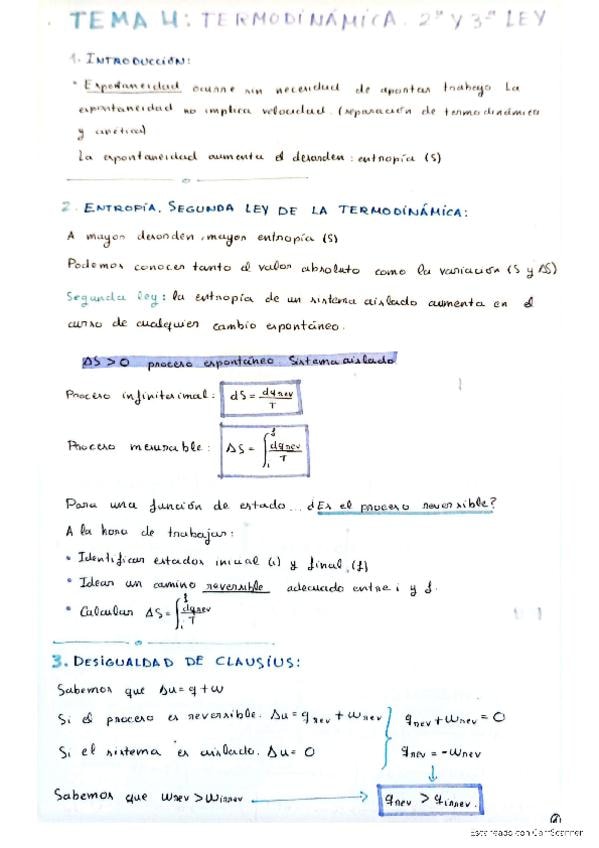 TEMA 4: TERMODINÁMICA. 2ª Y 3ª LEY
1. INTRODUCCIÓN:
• Espontaneidad ocurre sin necesidad de aportar trabajo. La
espontaneidad no implica velocidad. (separación de termodinámica
y cinética)
La espontaneidad aumenta el desorden: entropía (S)
2. ENTROPÍA. SEGUNDA LEY DE LA TERMODINÁMICA:
A mayor desorden, mayor entropía (S)
Podemos conocer tanto el valor absoluto como la variación (S y ΔS)
Segunda ley: la entropía de un sistema aislado aumenta en el
curso de cualquier cambio espontáneo.
ΔS > 0 proceso espontáneo. Sistema aislado
Proceso infinitesimal: dS = dqrev/T
Proceso mesurable: ΔS = ∫ᵢᶠ dqrev/T
Para una función de estado... ¿Es el proceso reversible?
A la hora de trabajar:
• Identificar estados inicial (i) y final (f)
• Idear un camino reversible adecuado entre i y f.
• Calcular ΔS = ∫ᵢᶠ dqrev/T
3. DESIGUALDAD DE CLAUSIUS:
Sabemos que Δu = q + w
Si el proceso es reversible. Δu = qrev + wrev } qrev + wrev = 0
Si el sistema es aislado. Δu = 0 qrev = -wrev
↓
Sabemos que wrev > wirrev → qrev > qirrev.
Escaneado con CamScanner